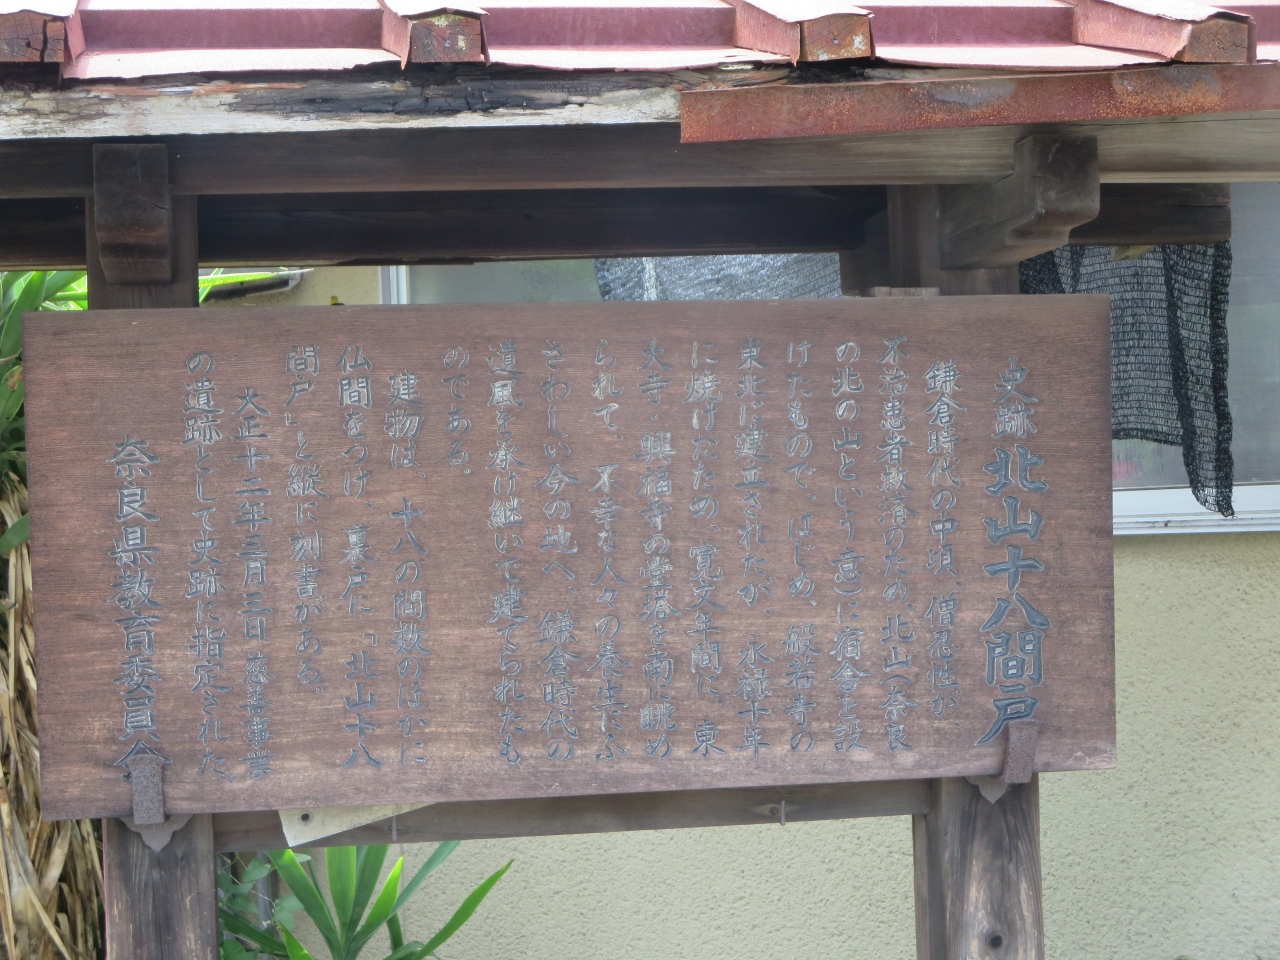 史跡 北山十八間戸
鎌倉時代の中頃、僧忍性が
不治患者救済のため、北山(奈良
の北の山という意)に宿舎を設
けたもので、はじめ、般若寺の
東北に建立されたが、永禄十年
に焼けたため、寛文年間に、東
大寺・興福寺の堂塔を南に眺め
られて、不幸な人々の養生にふ
さわしい今の地へ、鎌倉時代の
道風を承け継いで建てられたも
のである。
建物は、十八の間数のほかに
仏間をつけ、裏戸に「北山十八
間戸」と縦に刻書がある。
大正十二年三月三日 慈善事業
の遺跡として史跡に指定された。
奈良県教育委員会